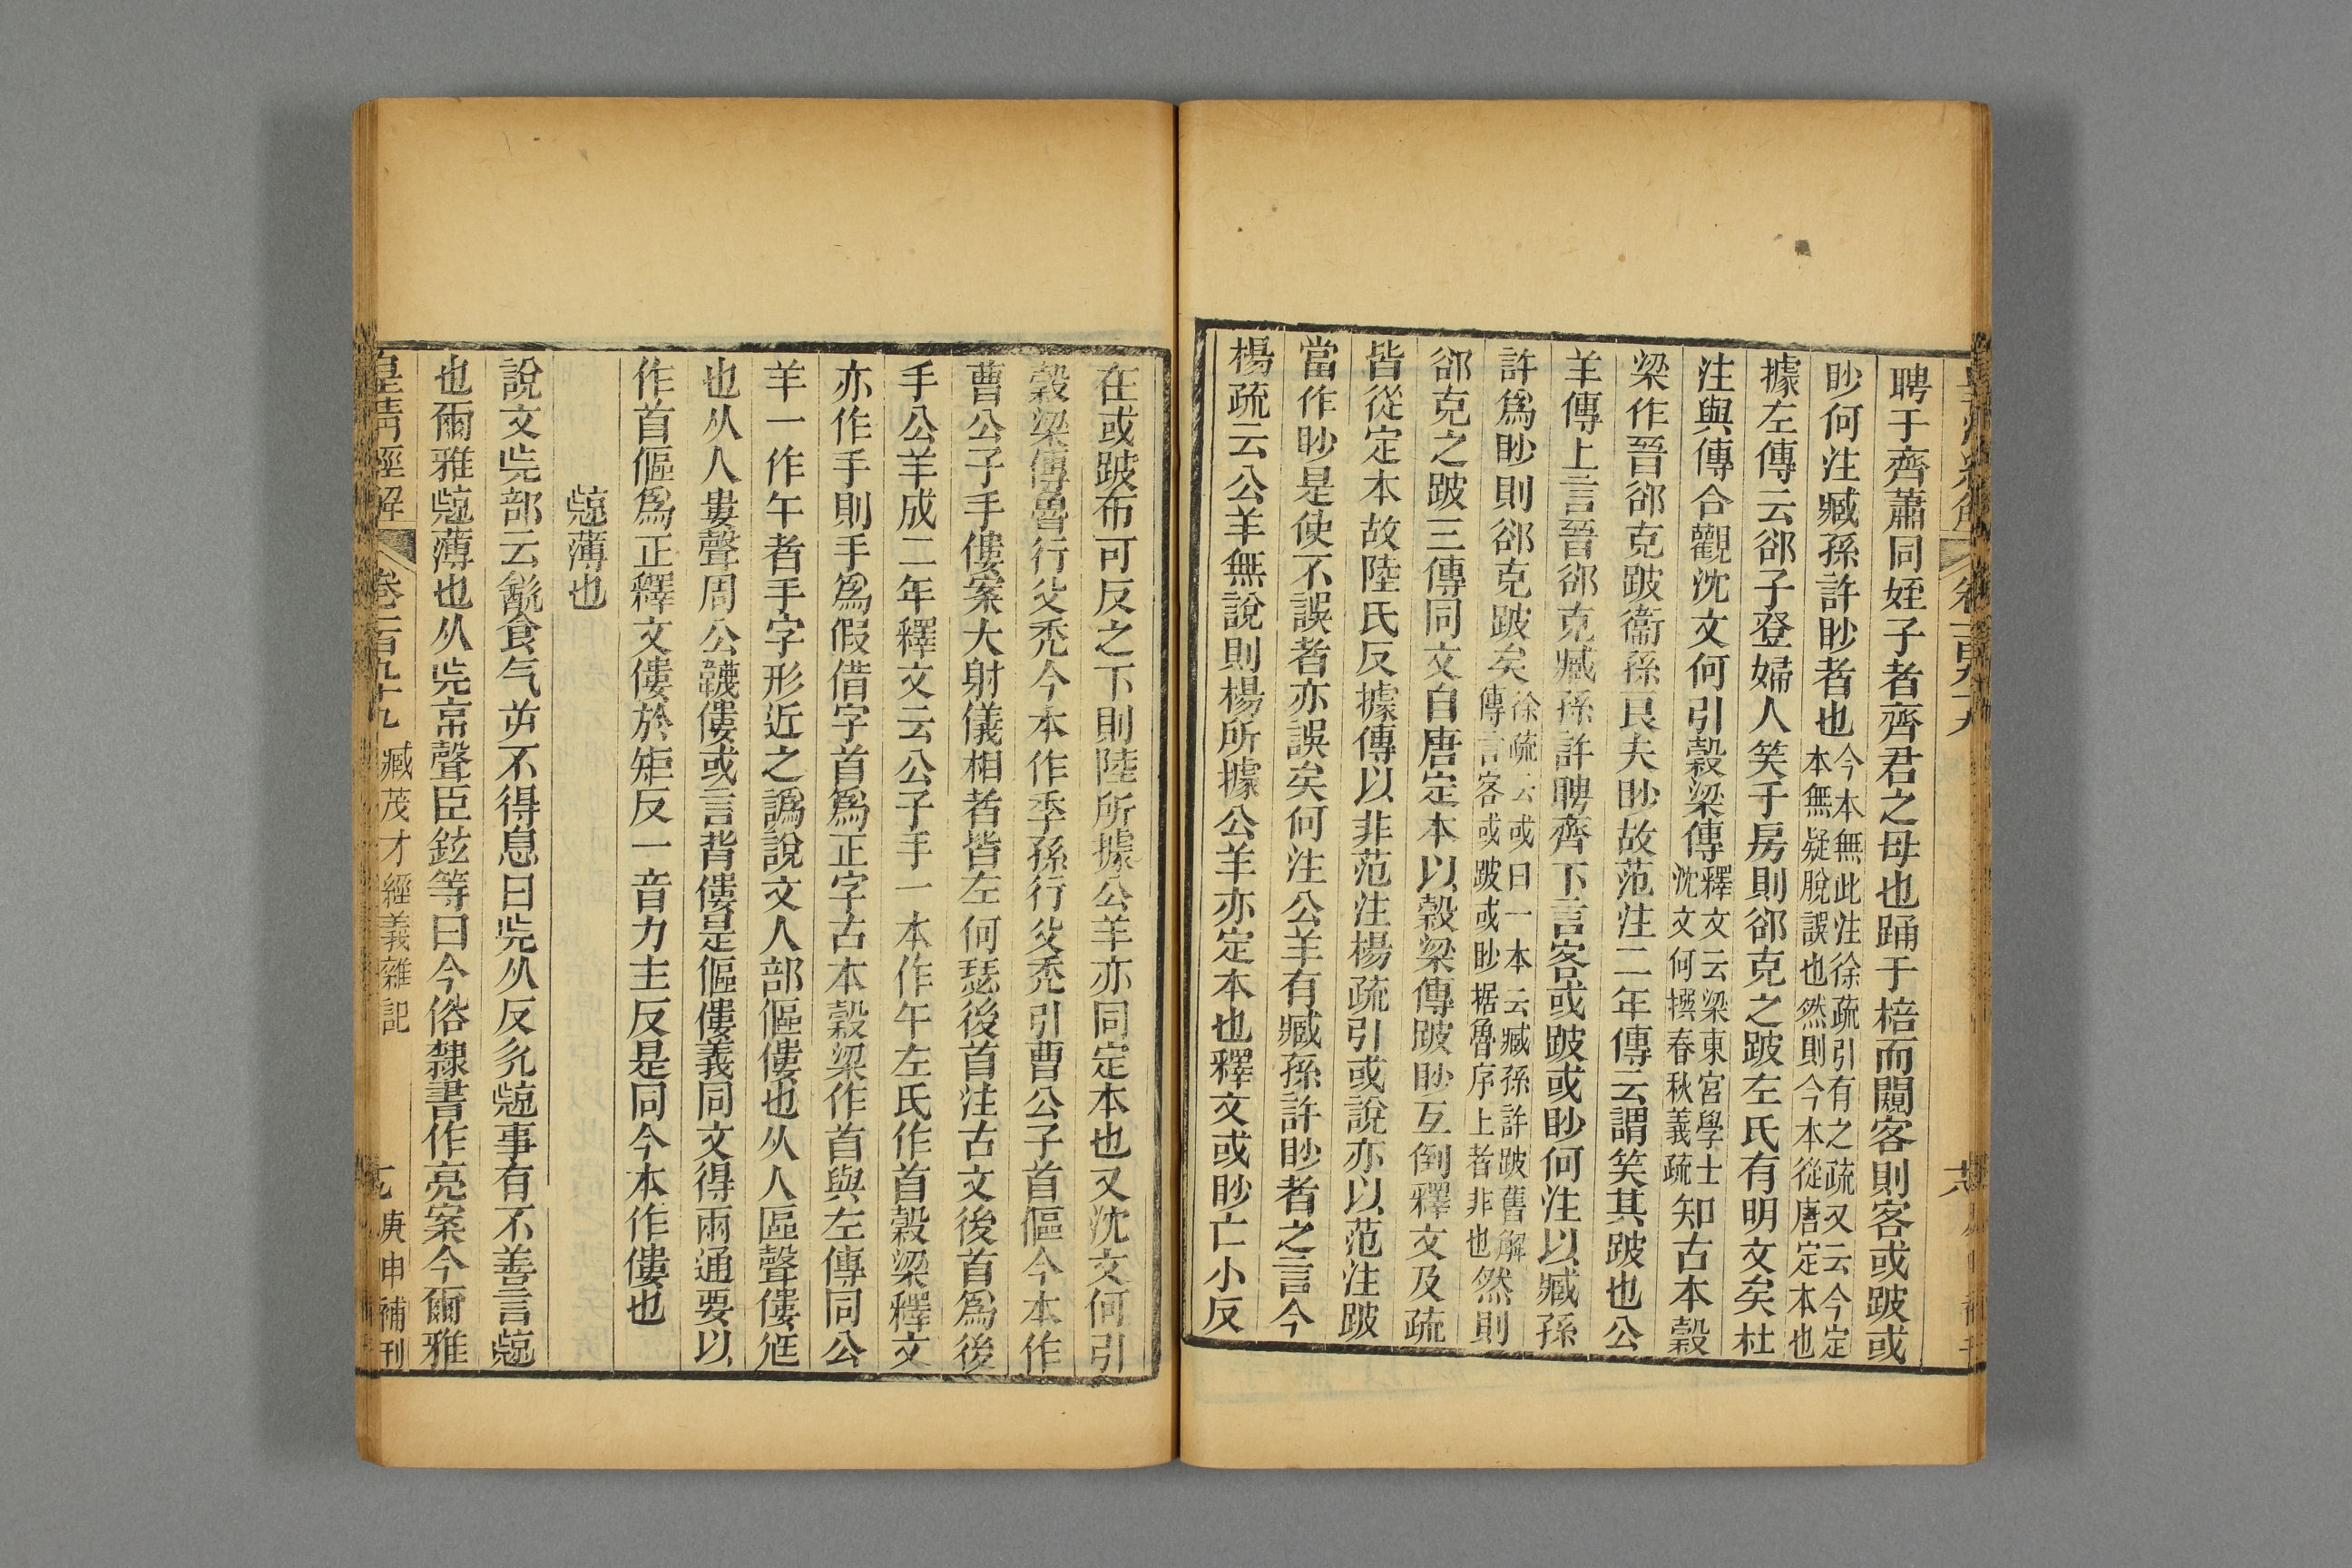 聘于齊蕭同姪子者齊君之母也踊于棓而闚客則客或跛或
眇何注臧孫許眇者也今本無此注徐疏引有之疏又云今定本無疑脫誤也然則今本從唐定本也
據左傳云郤子登婦人笑于房則郤克之跛左氏有明文矣杜
注與傳合觀沈文何引穀梁傳釋文云梁東宮學士沈文何撰春秋義疏知古本穀
梁作晉郤克跛衞孫良夫眇故范注二年傳云謂笑其跛也公
羊傳上言晉郤克臧孫許聘齊下言客或跛或眇何注以臧孫
許爲眇則郤克跛矣徐疏云或曰一本云臧孫許跛舊解傳言客或跛或眇据魯序上者非也然則
郤克之跛三傳同文自唐定本以穀梁傳跛眇互倒釋文及疏
皆從定本故陸氏反據傳以非范注楊疏引或說亦以范注跛
當作眇是使不誤者亦誤矣何注公羊有臧孫許眇者之言今
楊疏云公羊無說則楊所據公羊亦定本也釋文或眇亡小反
在或跛布可反之下則陸所據公羊亦同定本也又沈文何引
穀梁傳魯行父禿今本作季孫行父禿引曹公子首傴今本作
曹公子手僂案大射儀相者皆左何瑟後首注古文後首爲後
手公羊成二年釋文云公子手一本作午左氏作首穀梁釋文
亦作手則手爲假借字首爲正字古本穀梁作首與左傳同公
羊一作午者手字形近之譌說文人部傴僂也从人區聲僂尫
也从人婁聲周公韤僂或言背僂是傴僂義同文得兩通要以
作首傴爲正釋文僂於矩反一音力主反是同今本作僂也
㹁薄也
說文旡部云㱃食气屰不得息曰旡从反欠㹁事有不善言㹁
也爾雅㹁薄也从旡京聲臣鉉等曰今俗隸書作亮案今爾雅
皇清經解 卷二百九十九 臧茂才經義雜記 庚申補刊